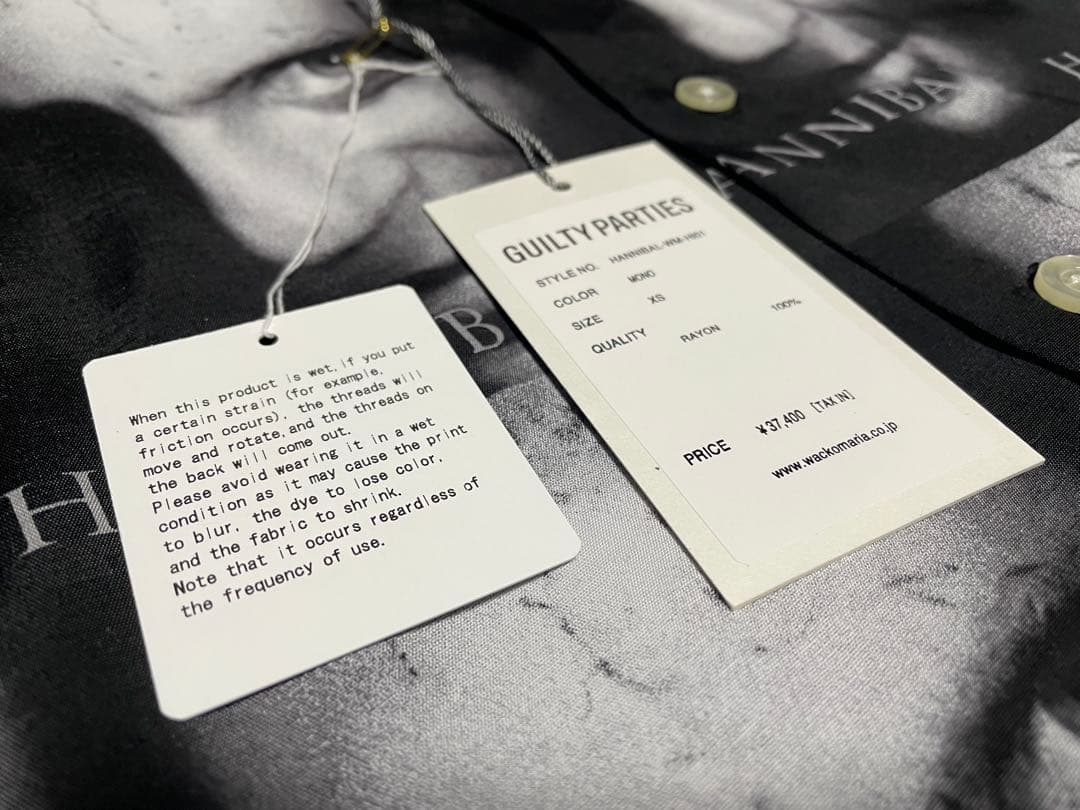 When this product is wet, if you put
a certain strain (for example,
friction occurs), the threads will
move and rotate, and the threads on
the back will come out.
Please avoid wearing it in a wet
condition as it may cause the print
to blur, the dye to lose color,
and the fabric to shrink.
Note that it occurs regardless of
the frequency of use.
GUILTY PARTIES
STYLE NO. HANNIBAL-WM-HI01
COLOR MONO
SIZE XS
QUALITY RAYON 100%
PRICE ¥37,400 [TAX IN]
www.wackomaria.co.jp
ANNIBA
H
B
H